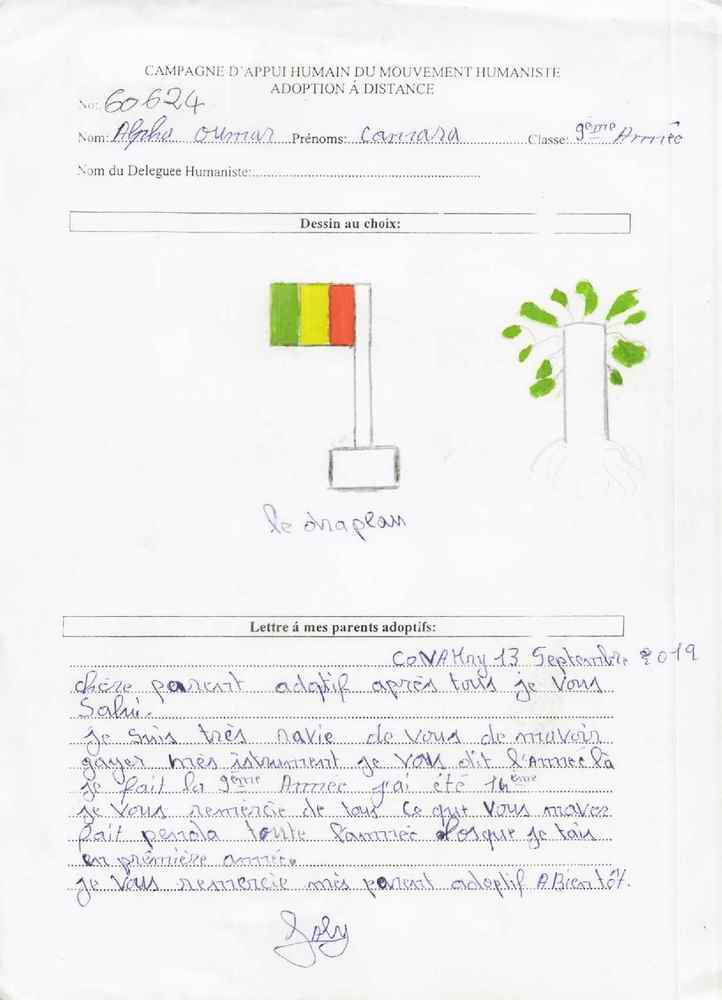 CAMPAGNE D'APPUI HUMAIN DU MOUVEMENT HUMANISTE
ADOPTION Á DISTANCE
No: 60624
Nom: Alpha oumar Prénoms: Camara Classe: 9ème Année
Nom du Deleguee Humaniste:
Dessin au choix:
le drapeau
Lettre á mes parents adoptifs:
CoNAKry 13 Septembre 2019
chère parent adoptif après tous je vous
Salui.
je suis très ravie de vous de mavoir
gayer mes istrument je vous dit l'Année là
je fait la 9ème Année j'ai été 14ème
je vous remercie de tous ce que vous mavez
fait penda toute l'année losque je tais
en première année.
je vous remercie mes parent adoptif A Bientôt.